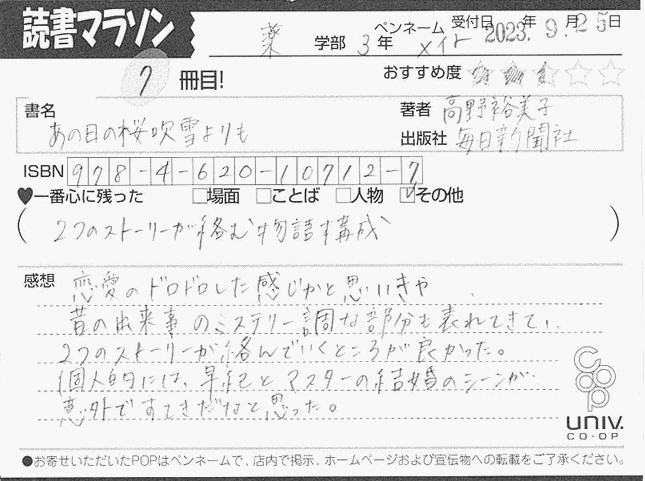 読書マラソン
薬 学部 3年 ペンネーム メイト 受付日 2023年9月25日
7 冊目!
おすすめ度
書名 あの日の桜吹雪よりも
著者 高野裕美子
出版社 毎日新聞社
ISBN 978-4-620-10712-7
♥一番心に残った □場面 □ことば □人物 ☑その他
(2つのストーリーが絡む物語構成)
感想 恋愛のドロドロした感じかと思いきや
昔の出来事のミステリー調な部分も表れてきて、
2つのストーリーが絡んでいくところが良かった。
個人的には、早紀とマスターの結婚のシーンが
意外ですてきだなと思った。
coop
UNIV.
CO-OP
●お寄せいただいたPOPはペンネームで、店内で掲示、ホームページおよび宣伝物への転載をご了承ください。